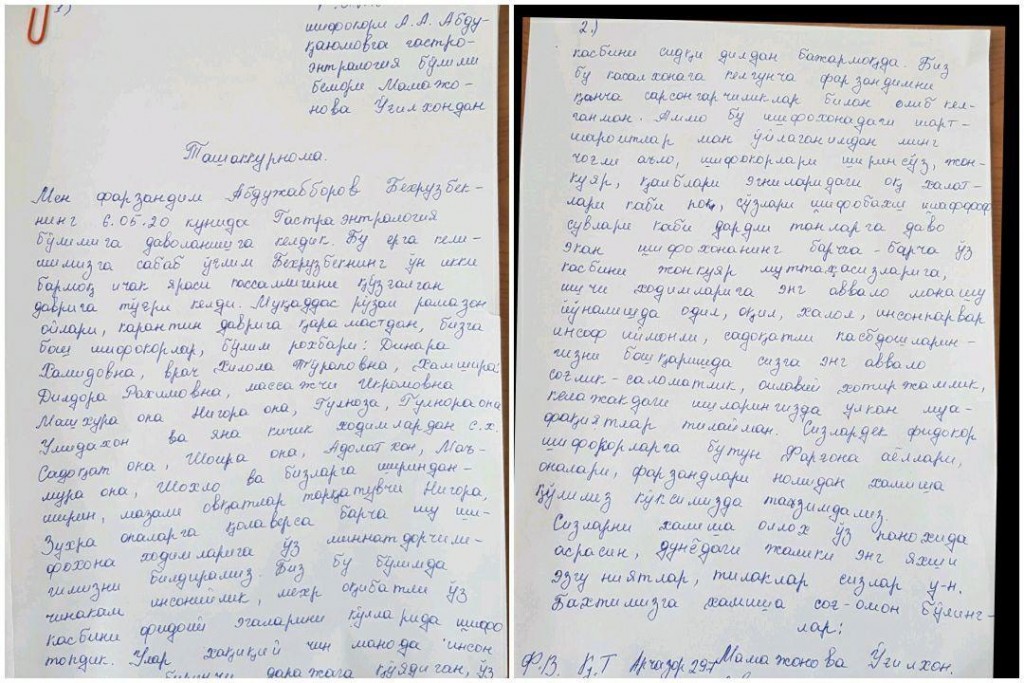 1)
шифокори А.А. Абду-
қаюмовга гастро-
энтралогия бўлими
бемори Мамажо-
нова Ўғилхондан
Ташаккурнома.
Мен фарзандим Абдужабборов Бехрузбек-
нинг 6.05.20 кунида Гастраэнтралогия
бўлимига даволанишга келдик. Бу ерга кели-
шимизга сабаб ўғлим Бехрузбекнинг ўн икки
бармоқ ичак яраси кассаллигини қўзғалган
даврига тўғри келди. Муқаддас рўзаи рамазон
ойлари, карантин даврига қарамастдан, бизга
бош шифокорлар, бўлим рохбари: Динара
Халидовна, врач Хилола Тўраповна, Хамшира:
Дилдора Рахимовна, массажчи Икромовна
Машхура опа Нигора опа, Гулноза, Гулнора опа
Умидахон ва яна кичик ходимлардан с.х.
Садоқат опа, Шоира опа, Адолатхон, Маъ-
мура опа, Шохло ва бизларга ширидан-
ширин, мазали овқатлар тарқатувчи Нигора,
Зухра опаларга қолаверса барча шу ши-
фохона ходимларига ўз миннатдорчили-
гимизни билдирамиз. Биз бу бўлимда
чинакам инсонийлик, мехр оқибатли ўз
касбини фидоий эгаларини қўлларида шифо
топдик. Улар хақиқий чин манода инсон
даражага қўядиган, ўз
2.)
касбини сидқи дилдан бажармоқда. Биз
бу касалхонага келгунча фарзандимни
қанча сарсонгарчиликлар билан олиб кел-
ганман. Аммо бу шифохонадаги шарт-
шароитлар ман ўйлаганимдан минг
чоғли аъло, шифокорлари ширинсўз, жон-
куяр, қалблари эгниларидаги оқ халат-
лари каби пок, сўзлари шифобахш шаффоф
сувлари каби дардли танларга даво
экан шифохонанинг барча-барча ўз
касбини жонкуяр мутахасизларига,
ишчи ходимларига энг аввало манашу
йўналишда одил, оқил, халол, инсонпарвар
инсоф иймонли, садоқатли касбдошларин-
гизни бошқаришда сизга энг аввало
соғлик-саломатлик, оилавий хотиржамлик,
келажакдаги ишларингизда улкан муа-
фақиятлар тилайман. Сизлардек фидокор
шифокорларга бутун Фарғона аёллари,
оналари, фарзандлари номидан хамиша
қўлимиз кўксимизда тазимдамиз.
Сизларни хамиша оллох ўз панохида
асрасин, дунёдаги жамики энг яхши
эзгу ниятлар, тилаклар сизлар у-н.
Бахтимизга хамиша соғ-омон бўлинг-
лар!
Ф.В. Қ.Т Арчазор 297 Мамажонова Ўғилхон.